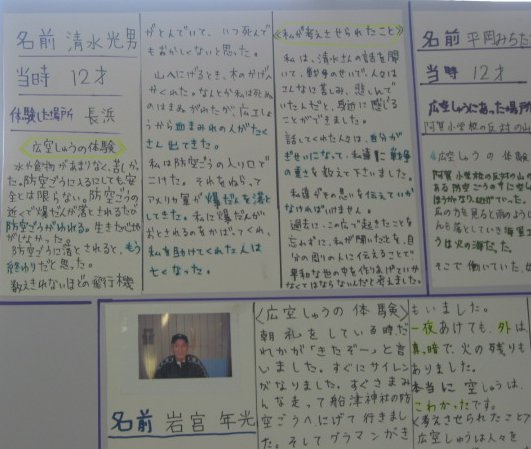 名前 清水光男
当時 12才
体験した場所 長浜
広空しゅうの体験
水や食物があまりなく、苦しかっ
た。防空ごうに入るにしても安
全とは限らない。防空ごうの
近くで爆だんが落とされるだけで
防空ごうがゆれる。生きたここち
がしなかった。
防空ごうに落とされると、もう
終わりだと思った。
数えきれないほどの飛行機
がとんでいて、いつ死んで
もおかしくないと思った。
山へにげるとき、木のかげへ
かくれた。なんとか私は死ぬ
のはまぬがれたが、広工しょ
うから血まみれの人がたく
さん出てきた。
私は防空ごうの入り口で
こけた。それをねらって
アメリカ軍が爆だんを落と
してきた。私に爆だんが
おとされるのをかばってくれ、
私を助けてくれた人は
亡くなった。
《私が考えさせられたこと》
私は、清水さんの話を聞
いて、戦争のせいで、人々は
こんなに苦しみ、悲しんで
いたんだと、身近に感じる
ことができました。
話してくれた人々は、自分が
ぎせいになって、私達に戦争
の重さを教えて下さいました。
私達がその思いを伝えていか
なければいけません。
過去に、この広で起きたことを
忘れずに、私が聞いたことを、自
分の周りの人に伝えることで
平和な世の中を作りあげていかな
くてはならないんだと考えました。
名前 平岡みちた
当時 12才
広空しゅうにあった場所
阿賀小学校の反対の
広空しゅうの体験
阿賀小学校の反対の山の
ある防空ごうの
地がゆれていた。
広の方を見ると雨のよう
んを落としていき海軍工
うは火の海だった。
そこで働いていた
名前 岩宮 年光
〈広空しゅうの体験〉
朝礼をしている時だ
れかが「きたぞー」と言
いました。すぐにサイレン
がなりました。すぐさまみ
んな走って船津神社の防
空ごうへにげて行きまし
た。そしてグラマンがき
もいました。
一夜あけても、外は
真暗で、火の残りも
ありました。
本当に空しゅうは、
こわかったです。
〈考えさせられたこと〉
広空しゅうは人々を